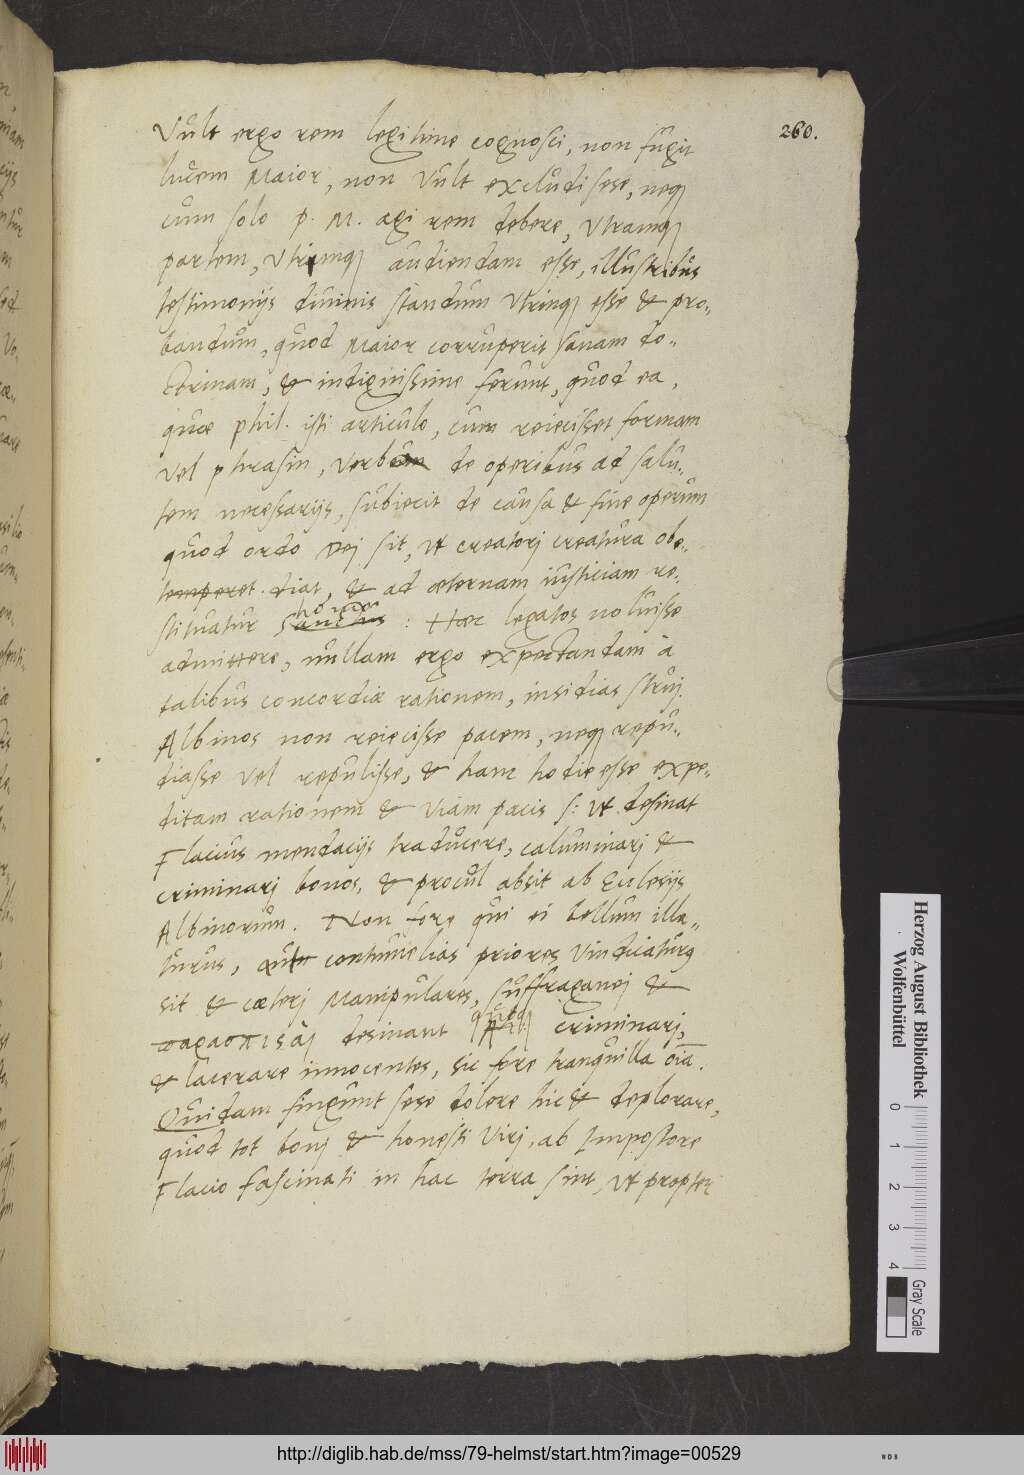 260.
Vult ergo rem legitime cognosci, non fugit
lucem Maior, non vult excludi sese, neq
cum solo p. M. agi rem debere, Utramq
partem, Utrumq audiendam esse, illustribus
testimonijs diuinis standum Utrinq esse & pro-
bandum, quod Maior corruperit sanam do-
ctrinam, & indignissime ferunt, quod ea,
quae phil. isti articulo, cum reiecisset formam
vel phrasin, verbum de operibus ad salu-
tem necessarijs, subiecit de causa & fine operum
quod ordo Dei sit, ut creatori creatura obe-
temperet. diat, & ad aeternam iusticiam re-
stituatur sanctus homo: Haec legatos noluisse
admittere, nullam ergo expectandam à
talibus concordiae rationem, insidias strui.
Albinos non reiecisse pacem, neq repu-
diasse vel repulisse, & ham hodie esse expe-
ditam rationem & viam pacis s: ut desinat
Flacius mendacijs traducere, caluminarj &
criminarj bonos, & procul absit ab Ecclesijs
Albinorum. Non fore qui ei bellum illa-
turus, aut contumelias priores vindicaturq
sit & caeterj Manipulares, suffraganej &
desinant Phil. criminarj,
& lacerare innocentes, sic fore tranquilla oīa.
Quidam fingunt sese dolere hic & deplorare,
quod tot bonj & honesti virj, ab Impostore
Flacio fascinati in hac terra sint, ut propter
Herzog August Bibliothek
Wolfenbüttel
0 1 2 3 4
Gray Scale
http://diglib.hab.de/mss/79-helmst/start.htm?image=00529